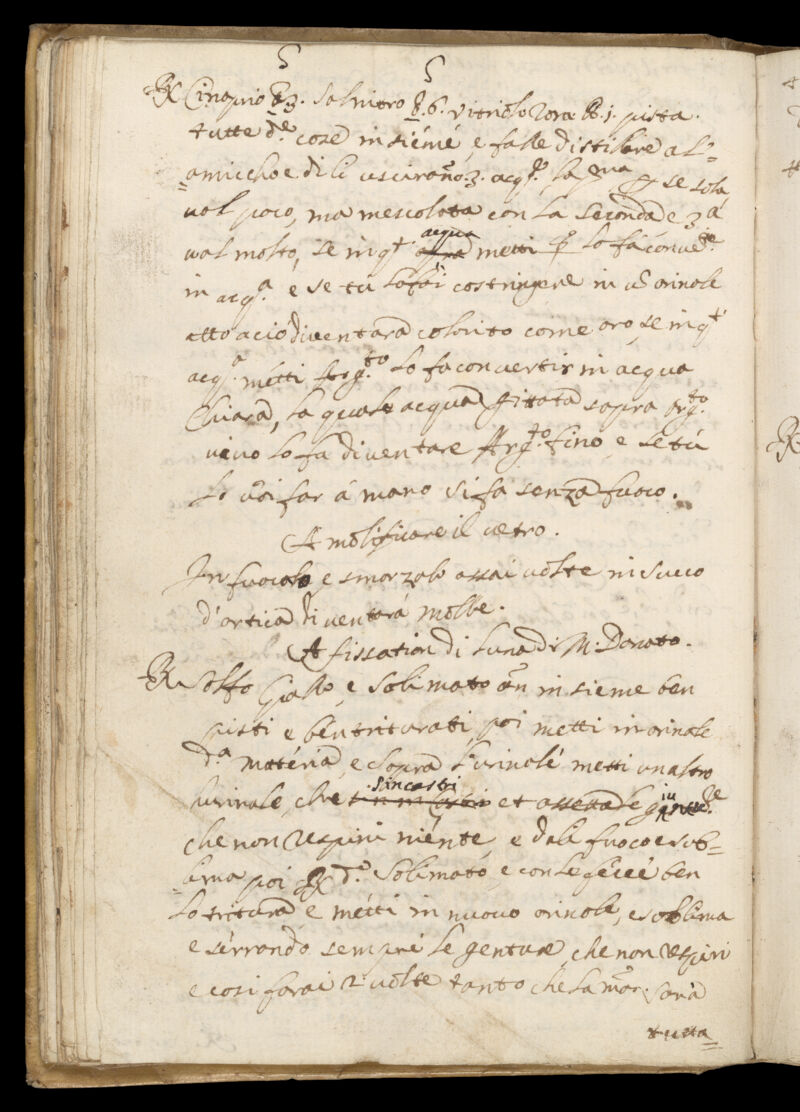 Rx Cinaprio ℥ 3. salnitro ℥. 6. vitriolo ℔. 1. pista.
tutte d.e cose insiéme, e falle distilare a l'=
=amiccho e di lì usciranõ 3. acq.e la p.ma per se sola
val poco, ma mescolata con la seconda e 3.a
val molto, se in q.t acqua metti lo fa conver.re
in acq.a e se tu lo fai costringere in ũ orinale
atto a ciò diventarà colorito come oro, se in q.t
acq.a métti Arg.to lo fa convertir in acqua
Chiara, la quale acqua gittata sopra arg.to
vivo lo fa diventare Arg.to fino e se tù
lo vòi far á mano si fa senza fuoco.
A molificare il vetro.
Infuocalo e smorzalo assai volte in succo
d'ortica diventará molle.
A fissation di Luna di M. Donato.
Rx Solfo Giallo, e Solimato an insieme ben
pisti e ben triturati, poi metti in orinale
d.a matéria, e sopra l'urinale metti un altro
hurinale, che s'incastri et assettale giu
che non respiri niénte, e dalli fuoco e sob=
=lima poi Rx d.o Solimato, e con le fécce ben
lo tritura e métti in nuovo orinale, e sobblima
e sérrando sempre le genture, che non respiri
e cosi farai 2 volte tanto che la mat. sarà
tutta=